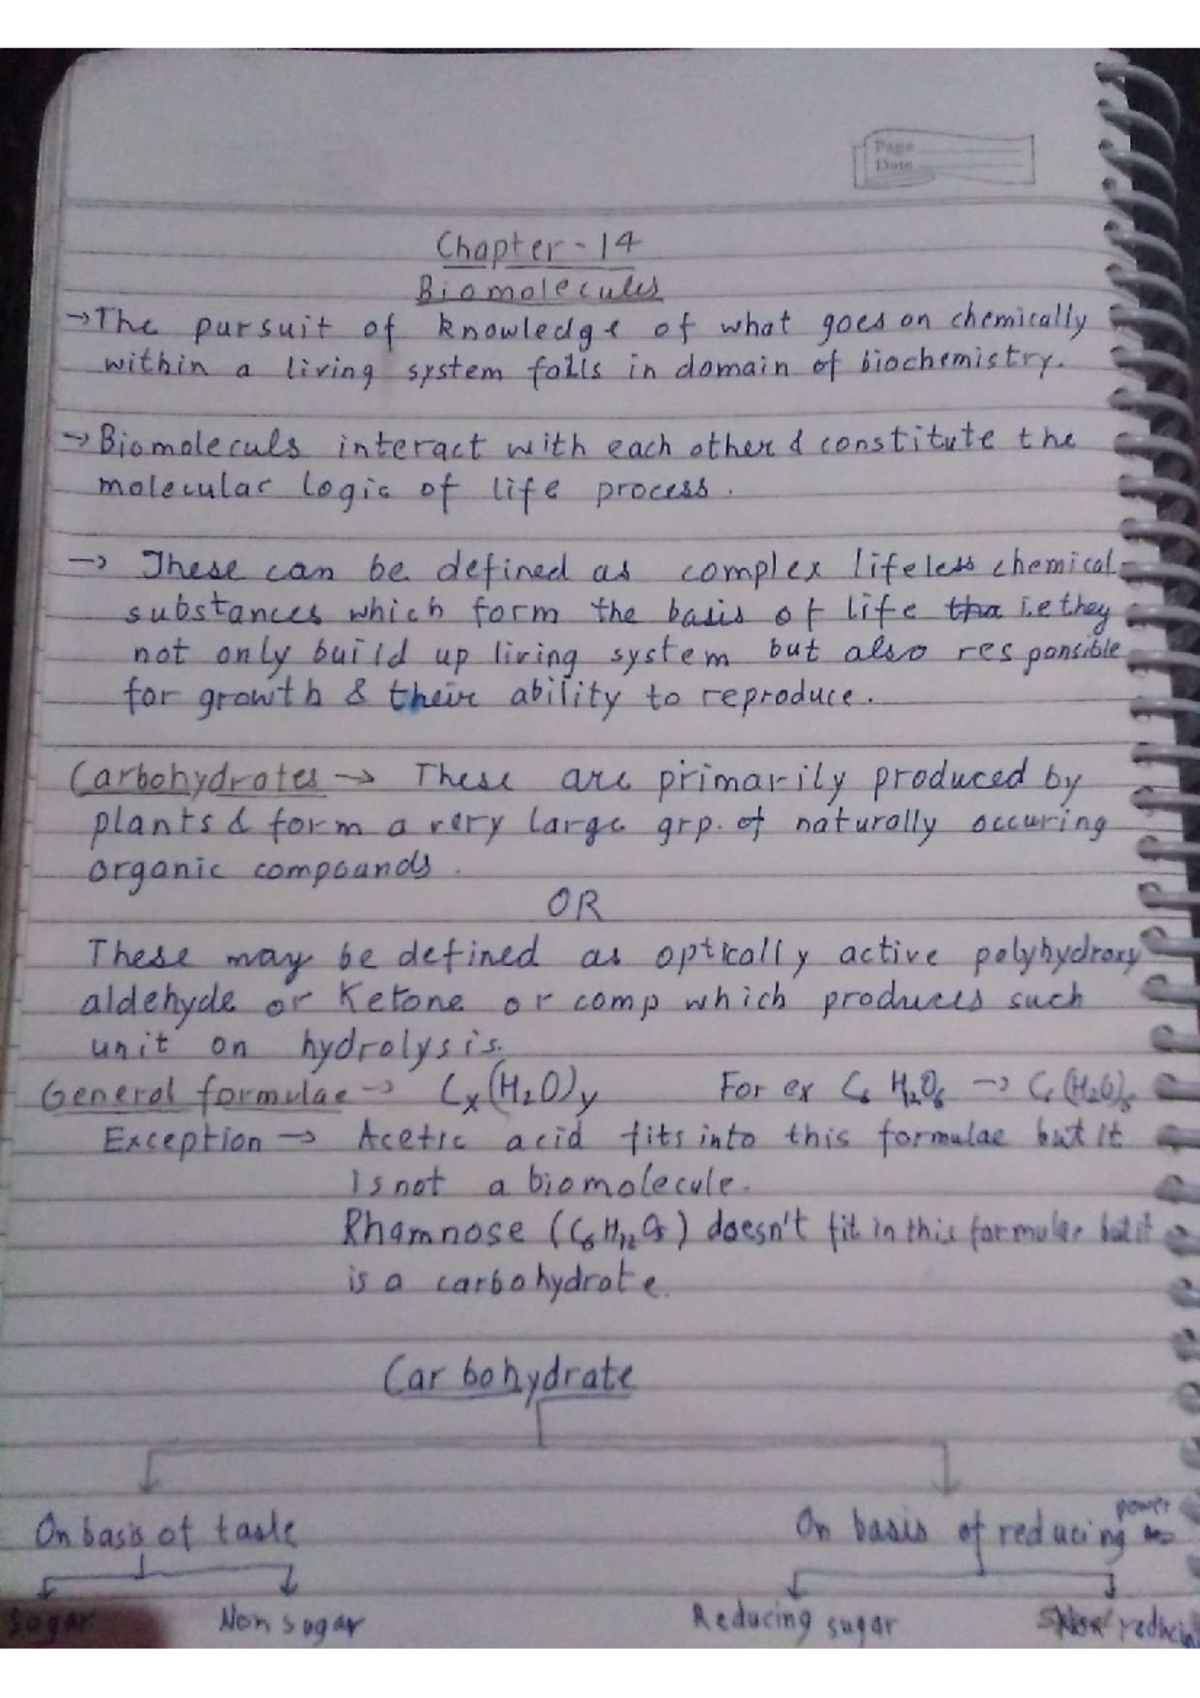 Page
Date
Chapter - 14
Biomolecules
→The pursuit of knowledge of what goes on chemically
within a living system falls in domain of biochemistry.
→Biomoleculs interact with each other & constitute the
molecular logic of life process.
→ These can be defined as complex lifeless chemical
substances which form the basis of life i.e they
not only build up living system but also responsible
for growth & their ability to reproduce.
Carbohydrates → These are primarily produced by
plants & form a very large grp. of naturally occuring
organic compounds.
OR
These may be defined as optically active polyhydroxy
aldehyde or Ketone or comp which produces such
unit on hydrolysis.
General formulae → Cx(H2O)y For ex C6 H12O6 → C6(H2O)6
Exception → Acetic acid fits into this formulae but it
is not a biomolecule.
Rhamnose (C6H12O5) doesn't fit in this formulae but it
is a carbohydrate.
Carbohydrate
On basis of taste On basis of reducing power
Sugar Non sugar Reducing sugar Non reducin